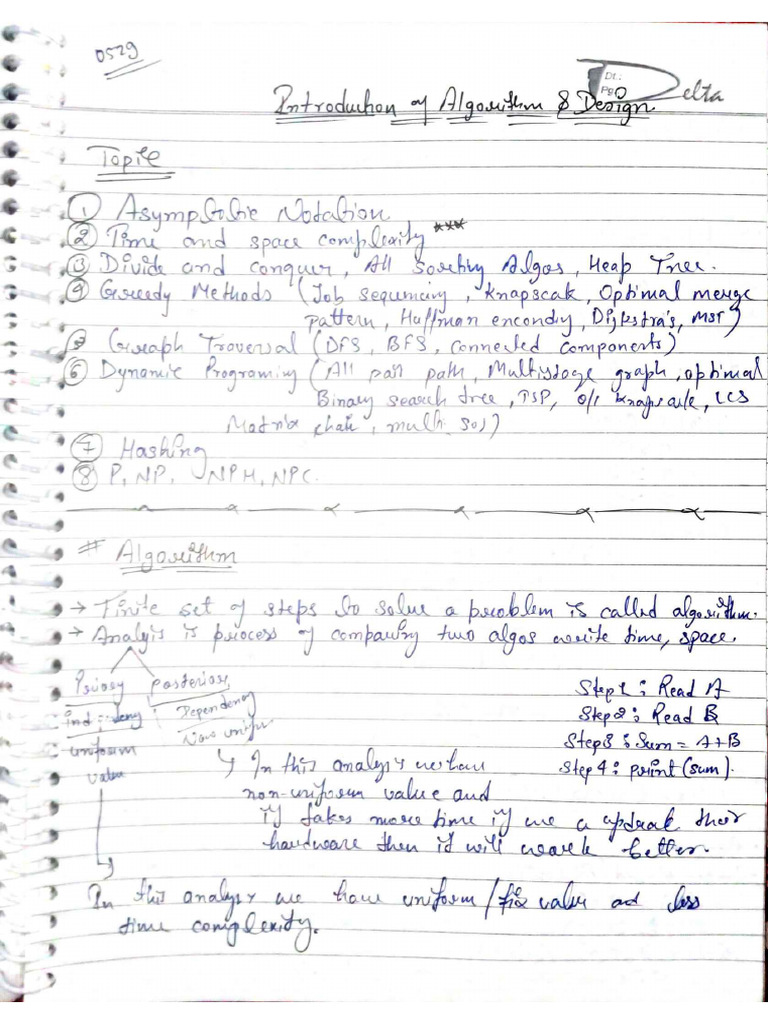 0529
Dt.:
Pg
Delta
Introduction of Algorithm & Design
Topic
① Asymptotic Notation
② Time and space complexity ***
③ Divide and conquer, All Sorting Algos, Heap Tree.
④ Greedy Methods (Job sequencing, Knapscak, Optimal merge
pattern, Huffman encondiy, Dijkstra's, MST)
⑤ Graph Traversal (DFS, BFS, connected components)
⑥ Dynamic Programing (All pair path, Multistage graph, optimal
Binary search tree, TSP, 0/1 knapsack, LCS
Matrix chain, mult. sos)
⑦ Hashing
⑧ P, NP, NPH, NPC.
# Algorithm
→ Finite set of steps to solve a problem is called algorithm.
→ Analyis is process of comparing two algos write time, space.
Priory posterior
Independeny Dependency
uniform Non unifor
value
Step1 : Read A
Step2 : Read B
Step3 : Sum = A+B
Step4 : print (sum).
↳ In this analysis we have
non-uniform value and
it takes more time if we a updeat their
hardware then it will work better.
In this analysis we have uniform/fix value and less
time complexity.